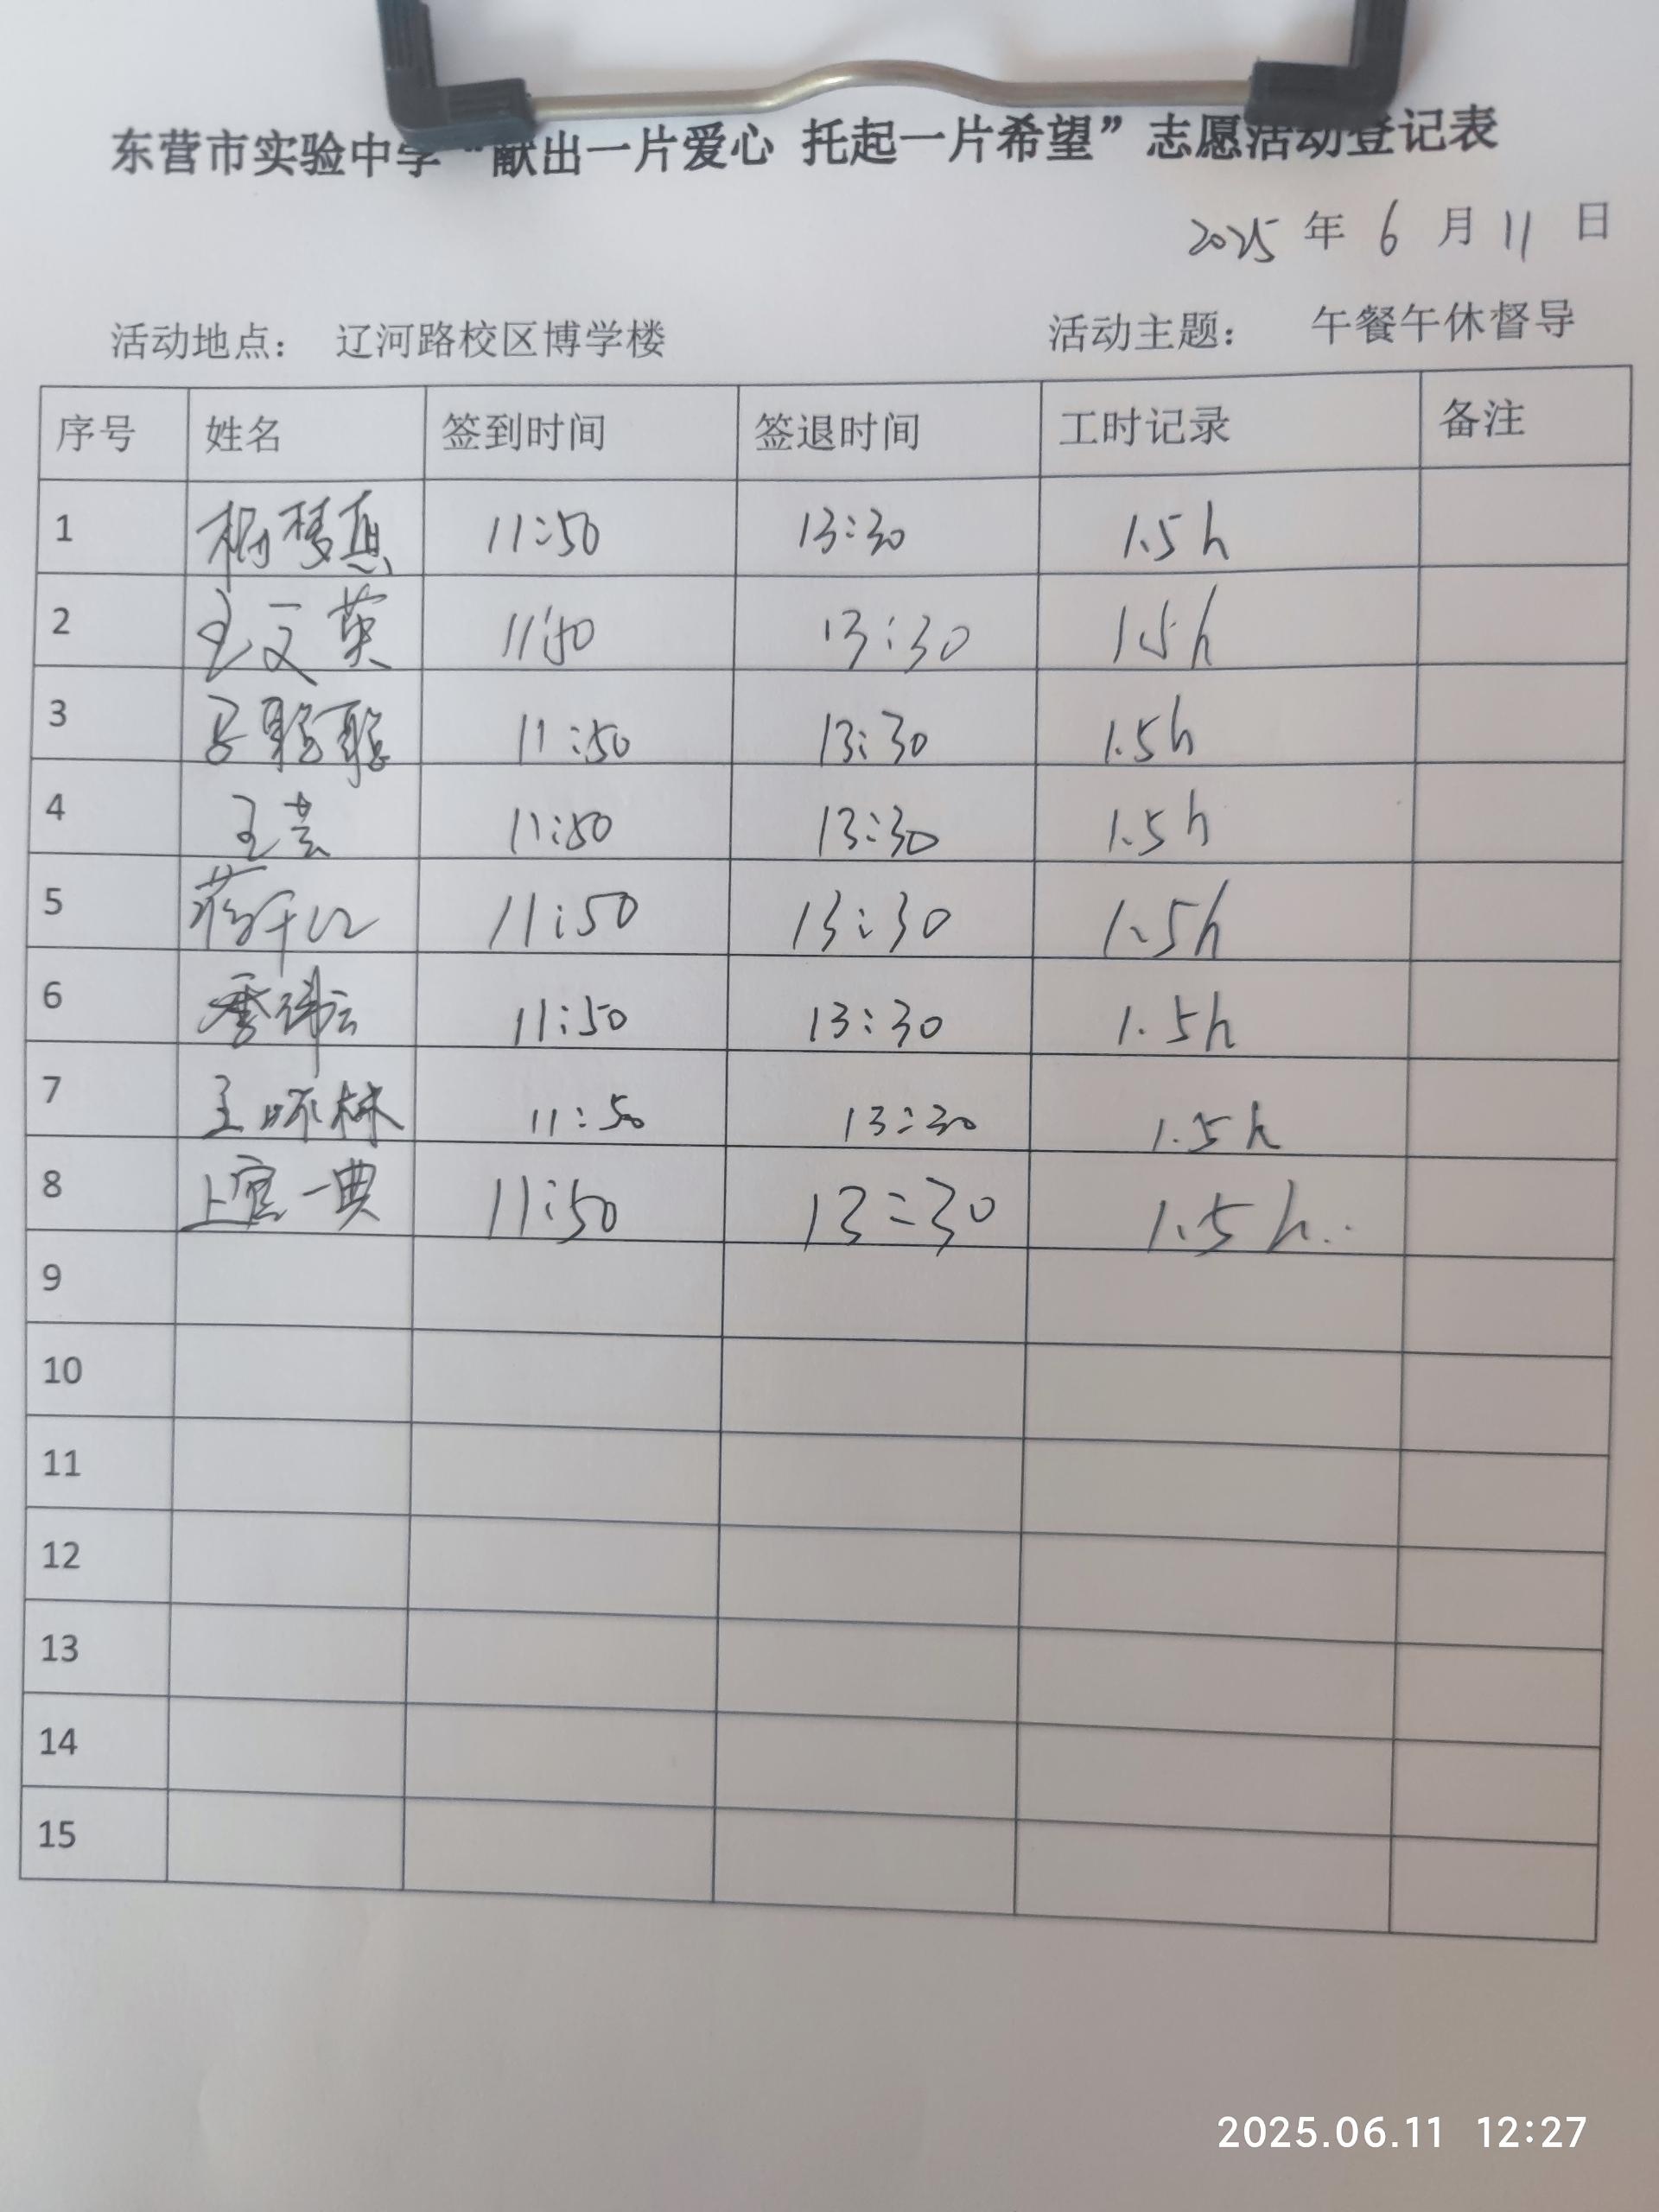 东营市实验中学“献出一片爱心 托起一片希望”志愿活动登记表
2025 年 6 月 11 日
活动地点： 辽河路校区博学楼 活动主题： 午餐午休督导
序号 姓名 签到时间 签退时间 工时记录 备注
1 杨梦 11:50 13:30 1.5h
2 王文英 11:50 13:30 1.5h
3 聪聪 11:50 13:30 1.5h
4 王芸 11:50 13:30 1.5h
5 蒋 11:50 13:30 1.5h
6 11:50 13:30 1.5h
7 王咏林 11:50 13:30 1.5h
8 上官一典 11:50 13:30 1.5h
9
10
11
12
13
14
15
2025.06.11 12:27